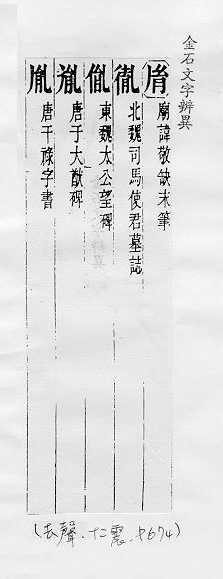 金石文字辨異
廟諱敬缺末筆
北魏司馬使君墓誌
東魏太公望碑
唐于大猷碑
胤 唐干祿字書
(去聲．十二震．P674)